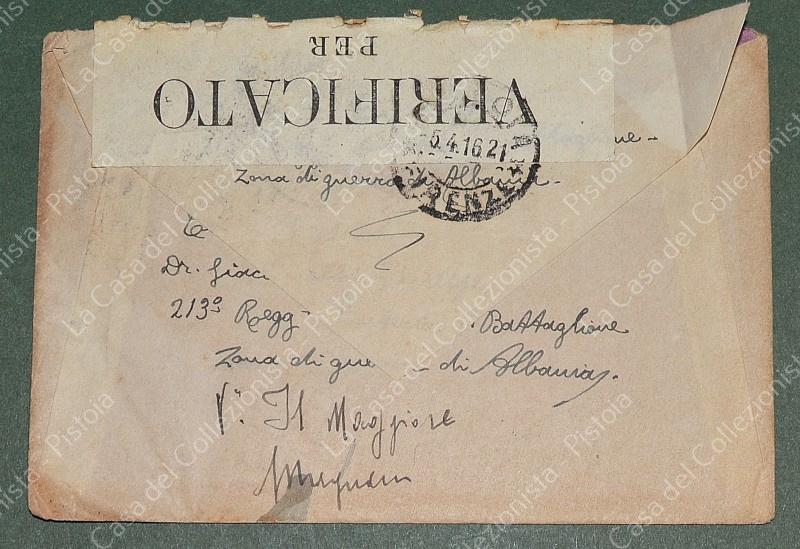 PER
VERIFICATO
5.4.16 21
FIRENZE
Zona di guerra di Albania -
Dr.
213º Regg. Battaglione
Zona di gue - di Albania.
Vº Il Maggiore
La Casa del Collezionista - Pistoia